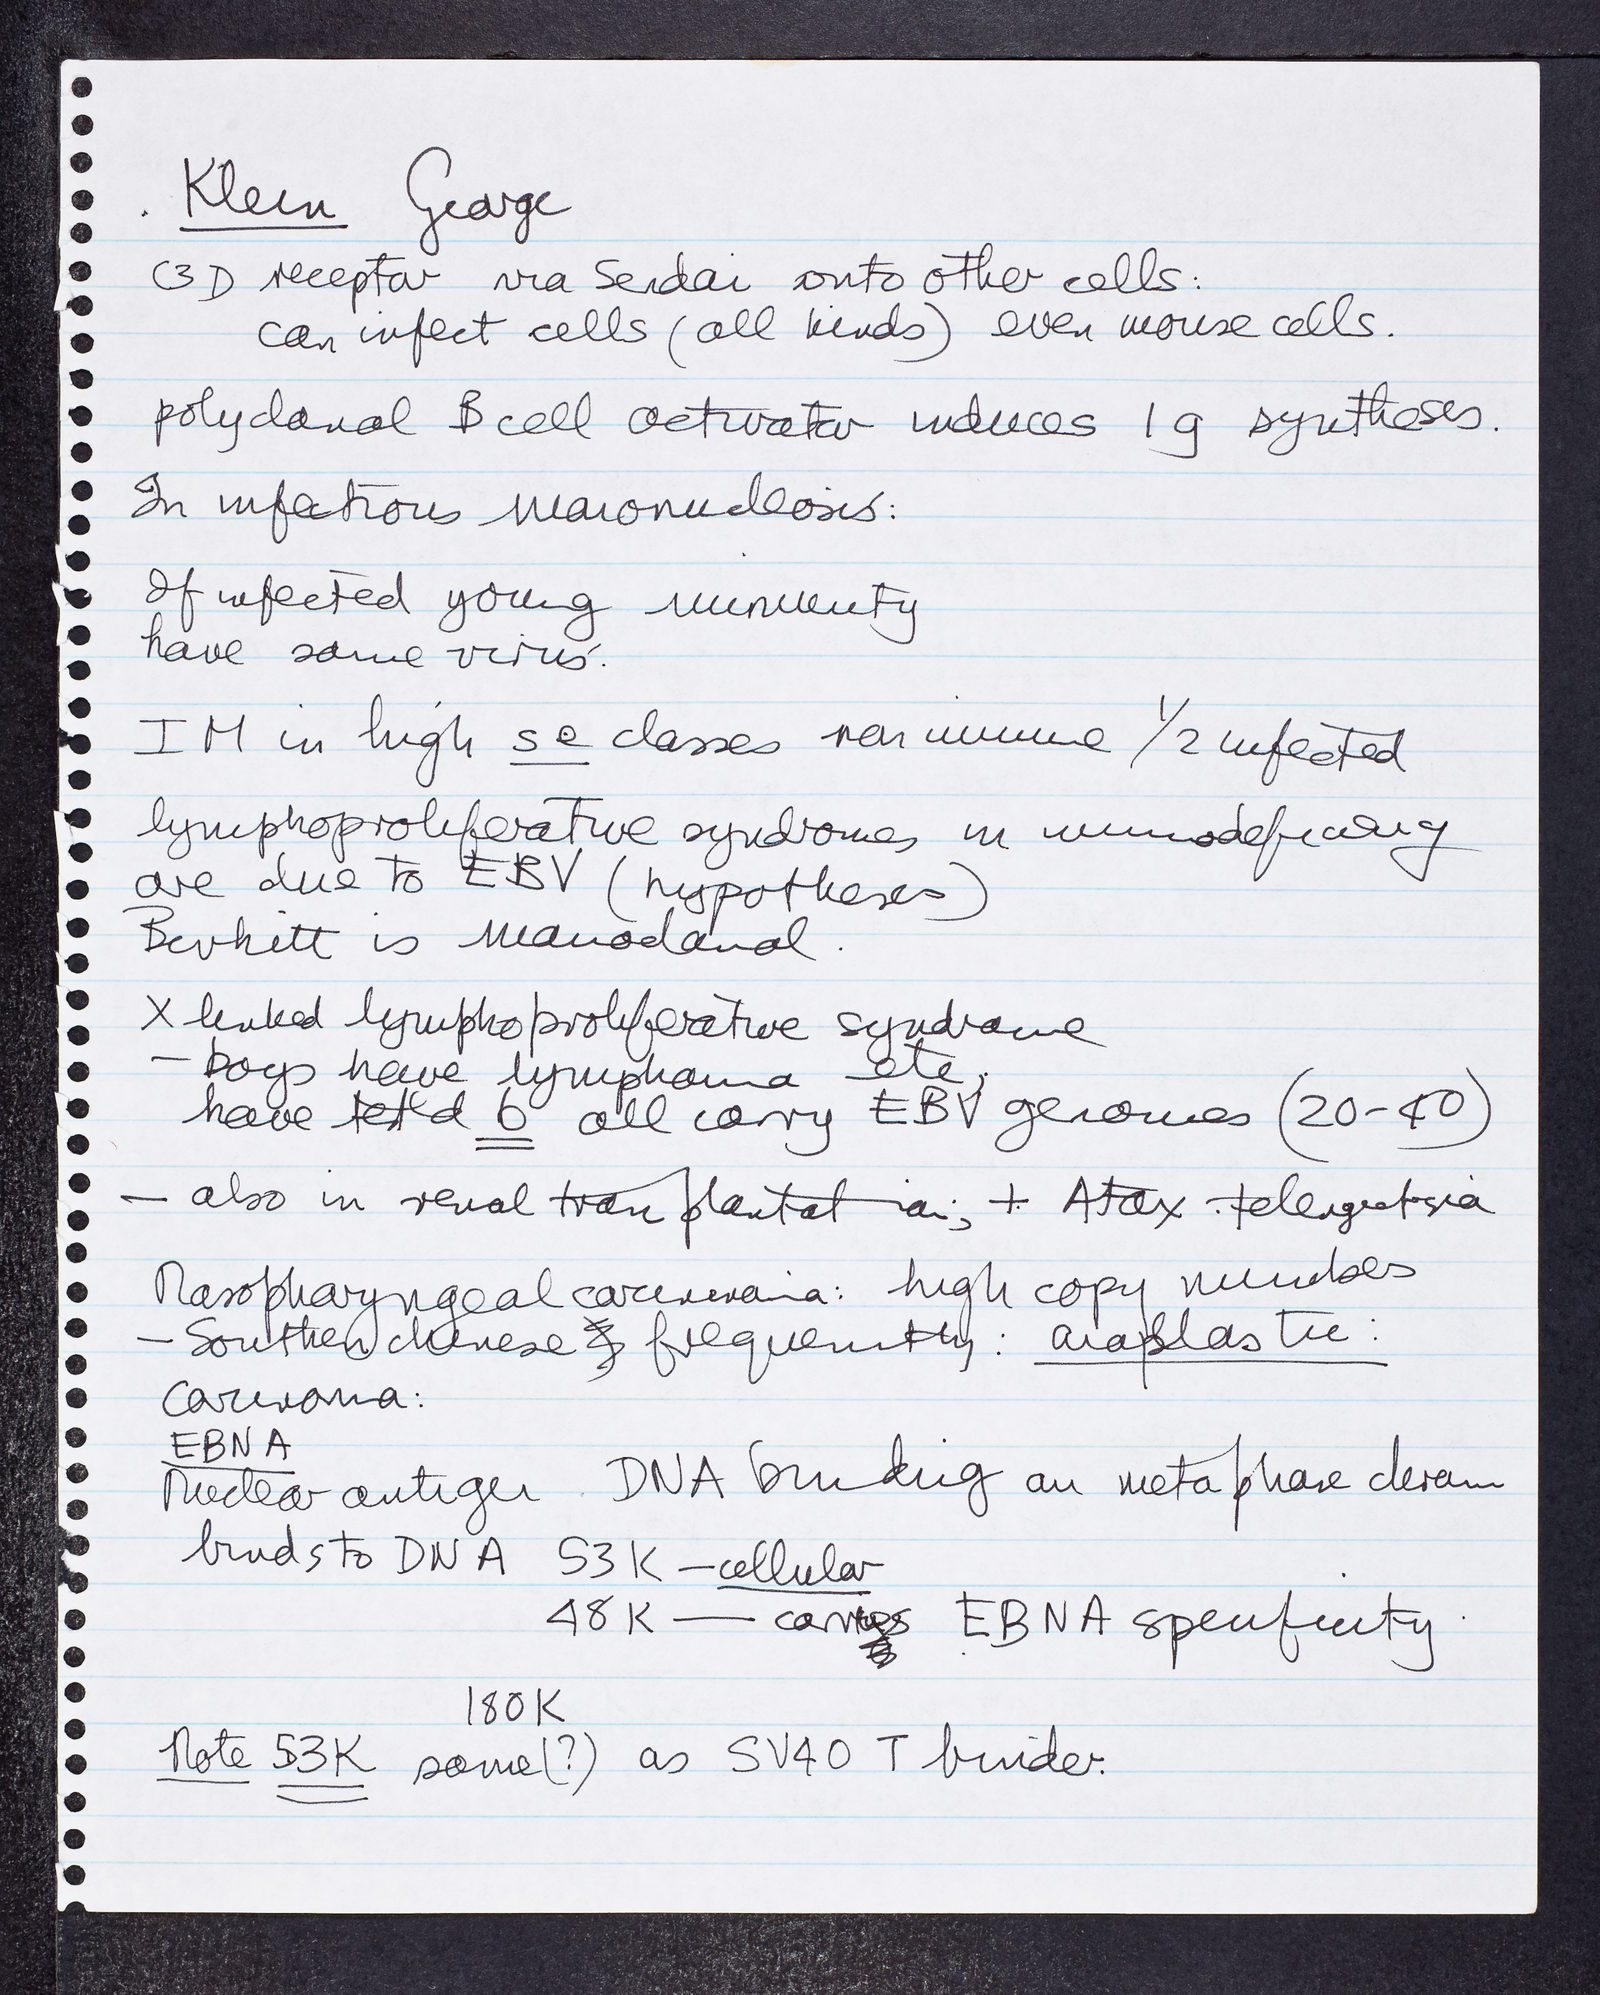 . Klein George
C3D receptor via Sendai onto other cells:
can infect cells (all kinds) even mouse cells.
polyclonal B cell activator induces Ig synthesis.
In infectious mononucleosis:
If infected young immunity
have same virus.
IM in high se classes non immune 1/2 infected
lymphoproliferative syndromes in immunodeficiency
are due to EBV (hypotheses)
Burkitt is monoclonal.
X linked lymphoproliferative syndrome
- boys have lymphoma etc.
have test'd 6 all carry EBV genomes (20-40)
- also in renal transplantation; + Atax telengetsia
Nasopharyngeal carcinoma: high copy numbers
- Southern chinese frequently: anaplastic:
Carcinoma:
EBNA
Nuclear antigen. DNA binding on metaphase chrom
binds to DNA 53K - cellular
48K — carries EBNA specificity.
180K
Note 53K same(?) as SV40 T binder.